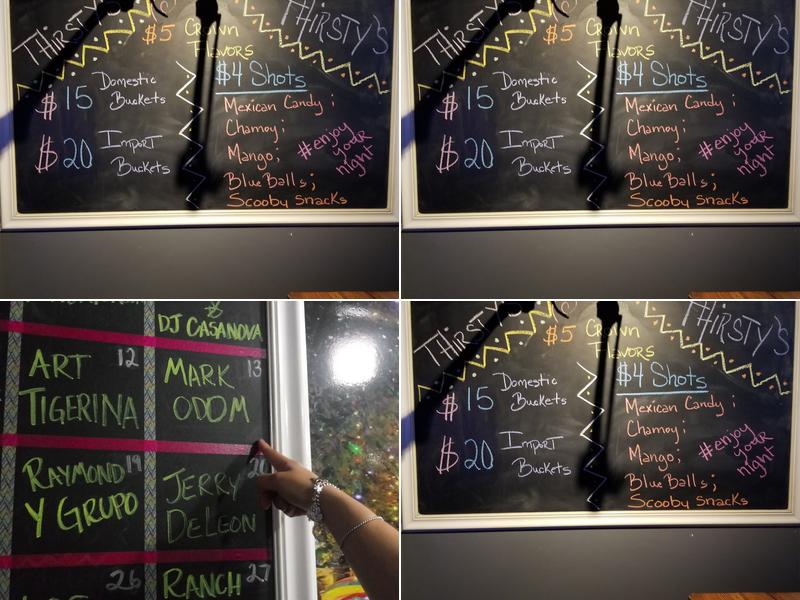 THIRSTY'S
THIRSTY'S
$5 Crown
Flavors
$15 Domestic
Buckets
$20 Import
Buckets
$4 Shots
Mexican Candy;
Chamoy;
Mango;
Blue Balls;
Scooby Snacks
#enjoy
your
night
THIRSTY'S
THIRSTY'S
$5 Crown
Flavors
$15 Domestic
Buckets
$20 Import
Buckets
$4 Shots
Mexican Candy;
Chamoy;
Mango;
Blue Balls;
Scooby Snacks
#enjoy
your
night
DJ CASANOVA
ART 12
TIGERINA
MARK 13
ODOM
RAYMOND 19
Y GRUPO
JERRY 20
DELEON
26
RANCH 27
THIRSTY'S
THIRSTY'S
$5 Crown
Flavors
$15 Domestic
Buckets
$20 Import
Buckets
$4 Shots
Mexican Candy;
Chamoy;
Mango;
Blue Balls;
Scooby Snacks
#enjoy
your
night